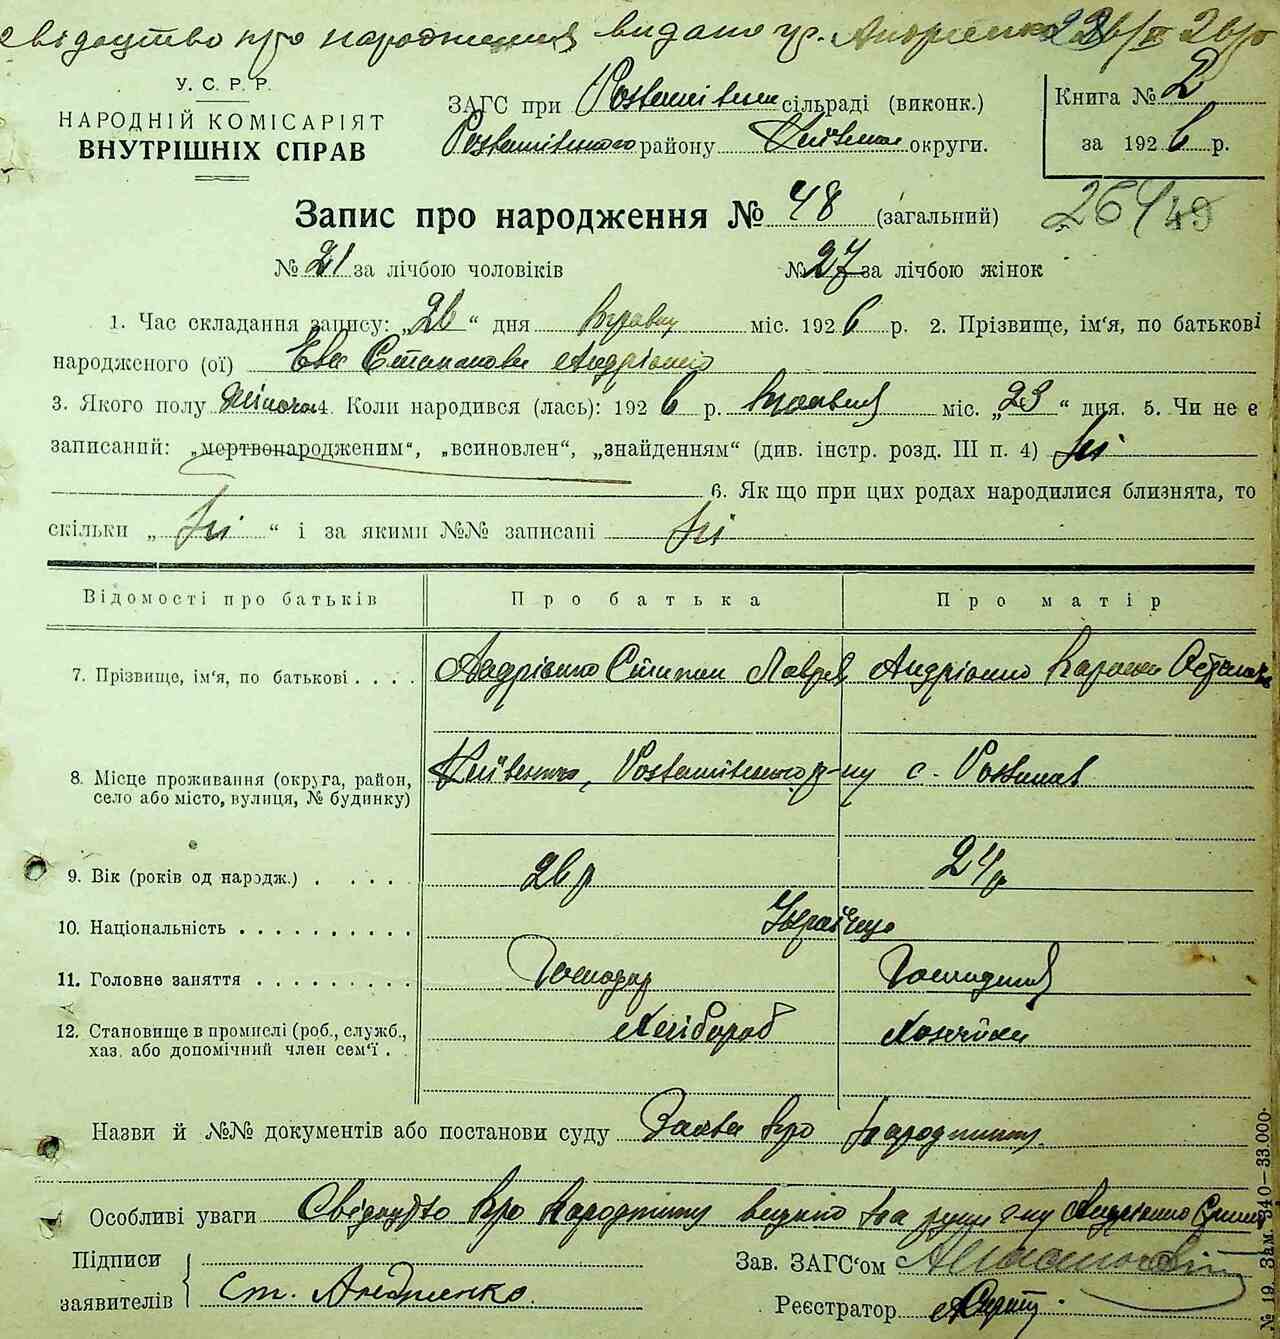 свідоцтво про народження видано гр. Андрієнко
У. С. Р. Р.
НАРОДНІЙ КОМІСАРІЯТ
ВНУТРІШНІХ СПРАВ
ЗАГС при сільраді (виконк.)
району округи.
Книга № 2
за 1926 р.
Запис про народження № 48 (загальний)
264 49
№ 21 за лічбою чоловіків № 27 за лічбою жінок
1. Час складання запису: „26“ дня Травня міс. 1926 р. 2. Прізвище, ім'я, по батькові
народженого (ої) Ева Степанова Андрієнко
3. Якого полу 4. Коли народився (лась): 1926 р. Травня міс. „23“ дня. 5. Чи не є
записаний: „мертвонародженим“, „всиновлен“, „знайденням“ (див. інстр. розд. III п. 4) Ні
6. Як що при цих родах народилися близнята, то
скільки „Ні“ і за якими №№ записані Ні
Відомості про батьків Про батька Про матір
7. Прізвище, ім'я, по батькові . . . . Андрієнко Степан Лавров Андрієнко
8. Місце проживання (округа, район,
село або місто, вулиця, № будинку) р-ну с.
9. Вік (років од народж.) . . . . 26 р 24 р
10. Національність . . . . . . . . . . Українці
11. Головне заняття . . . . . . . . . Господар
12. Становище в промислі (роб., служб.,
хаз. або допомічний член сем'ї . . Хлібороб Хазяйка
Назви й №№ документів або постанови суду Заява про народження
Особливі уваги про народження видано на руки г-ну Андрієнко
Підписи
заявителів Ст. Андриенко.
Зав. ЗАГС'ом
Реєстратор
№ 19. Зам. 340—33.000